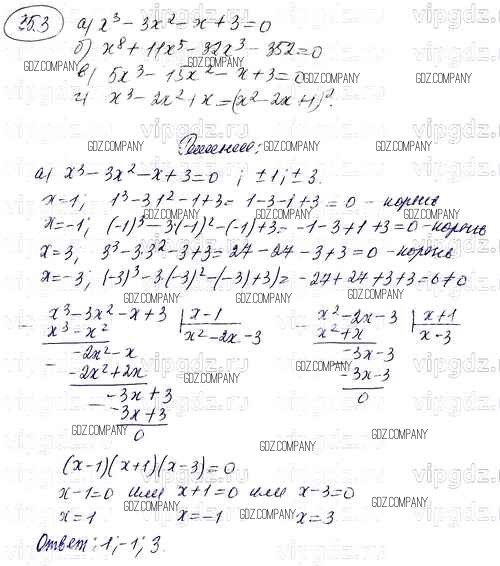 25.3
а) x³ - 3x² - x + 3 = 0
б) x⁸ + 11x⁵ - 32x³ - 352 = 0
в) 5x³ - 15x² - x + 3 = 0
г) x³ - 2x² + x = (x² - 2x + 1)².
Решение:
а) x³ - 3x² - x + 3 = 0 ; ±1; ±3.
x = 1; 1³ - 3·1² - 1 + 3 = 1 - 3 - 1 + 3 = 0 - корень
x = -1; (-1)³ - 3·(-1)² - (-1) + 3 = -1 - 3 + 1 + 3 = 0 - корень
x = 3, 3³ - 3·3² - 3 + 3 = 27 - 27 - 3 + 3 = 0 - корень
x = -3; (-3)³ - 3·(-3)² - (-3) + 3) = -27 + 27 + 3 + 3 = 6 ≠ 0
x³ - 3x² - x + 3 | x - 1
x³ - x² | x² - 2x - 3
-2x² - x
-2x² + 2x
-3x + 3
-3x + 3
0
x² - 2x - 3 | x + 1
x² + x | x - 3
-3x - 3
-3x - 3
0
(x - 1)(x + 1)(x - 3) = 0
x - 1 = 0 или x + 1 = 0 или x - 3 = 0
x = 1 x = -1 x = 3
Ответ: 1; -1; 3.
GDZ.COMPANY
vipgdz.ru